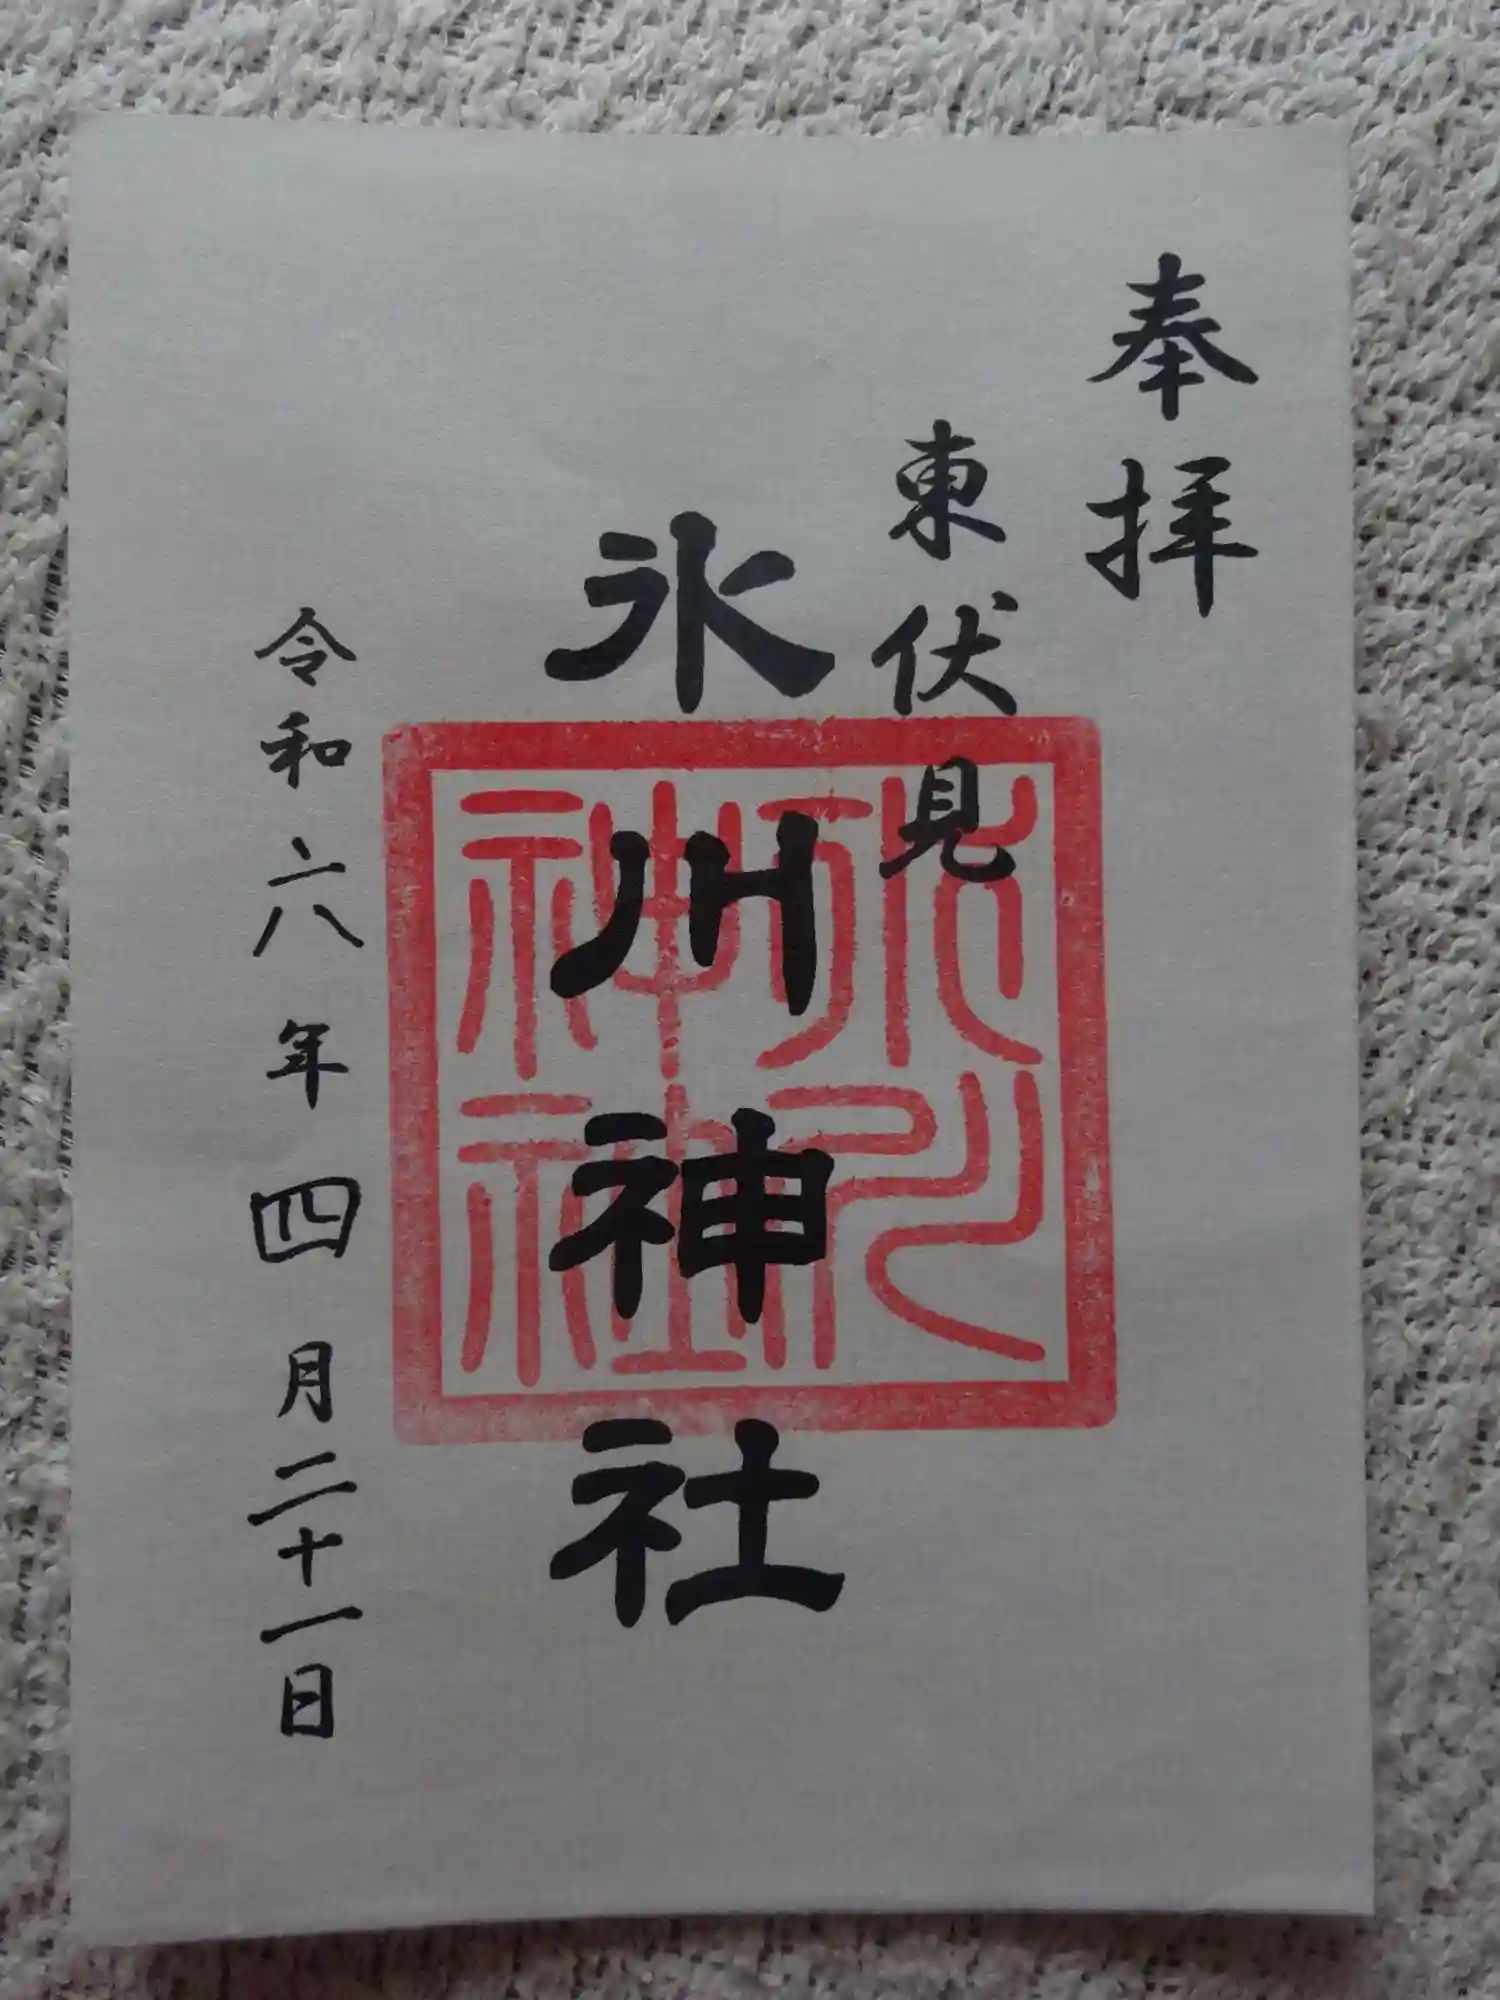 奉拝
東伏見
氷川神社
氷川神社
令和六年四月二十一日